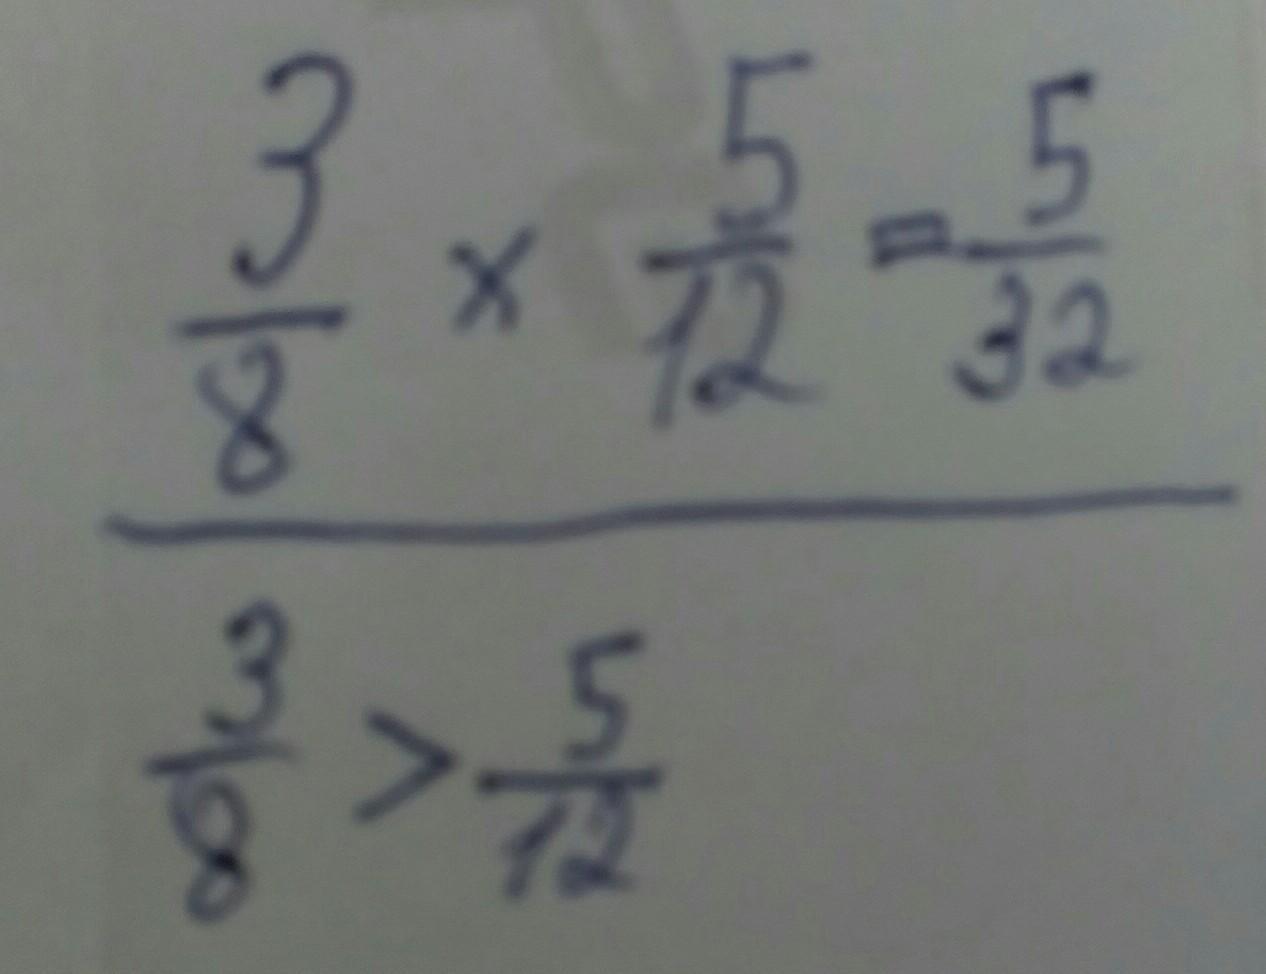 3/8 x 5/12 = 5/32
3/8 > 5/12